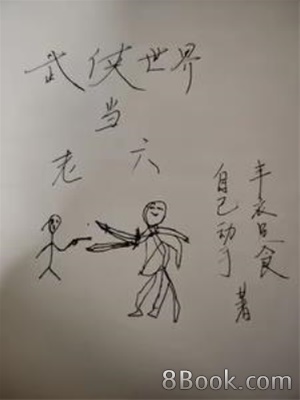 武侠世界
当
老六
丰衣足食
自己动手
著
8Book.com